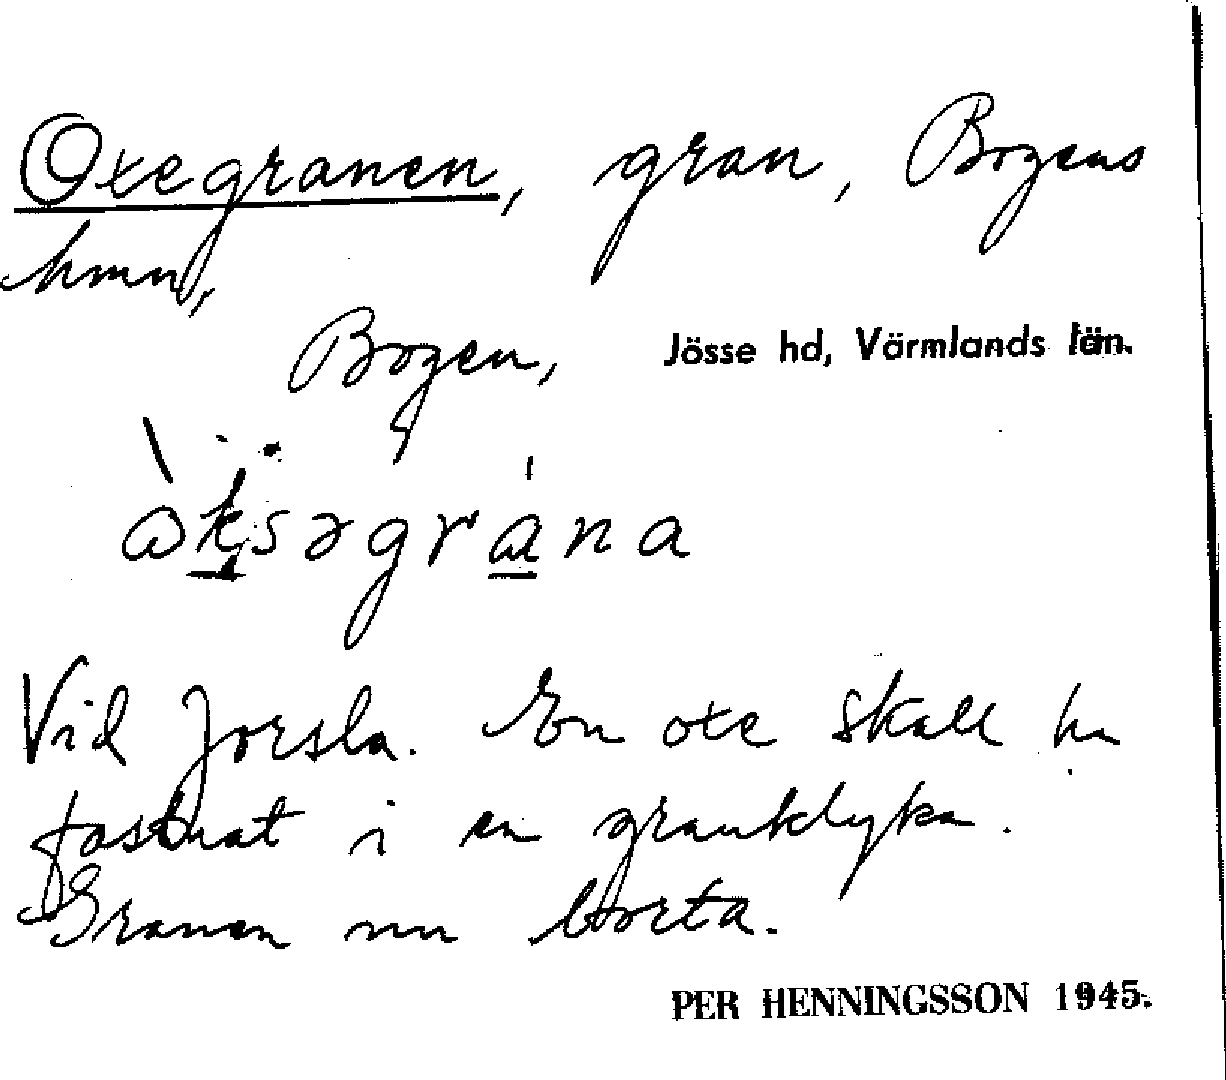 Oxegranen, gran, Bogens
hmn,
Bogen, Jösse hd, Värmlands län.
ɷ̀ksəgrána
Vid Jorsla. En oxe skall ha
fastnat i en granklyka.
Granen nu borta.
PER HENNINGSSON 1945.